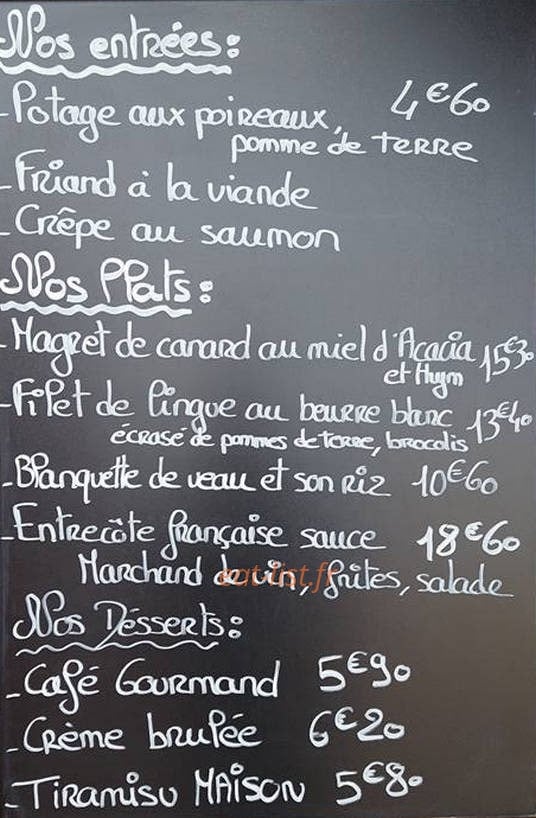 Nos entrées:
- Potage aux poireaux, 4€60
pomme de terre
- Friand à la viande
- Crêpe au saumon
Nos Plats:
- Magret de canard au miel d'Acacia 15€30
et thym
- Filet de lingue au beurre blanc 13€40
écrasé de pommes de terre, brocolis
- Blanquette de veau et son riz 10€60
- Entrecôte française sauce 18€60
Marchand de vin, frites, salade
eat-list.fr
Nos Désserts:
- Café Gourmand 5€90
- Crème brulée 6€20
- Tiramisu MAISON 5€80